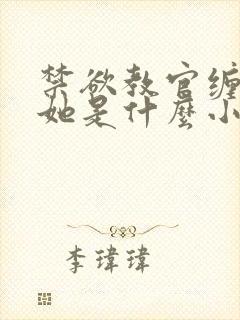 禁欲教官缠
她是什麼小
李瑋瑋